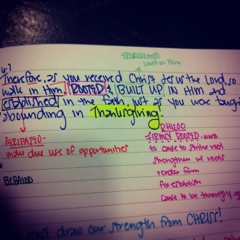 Therefore, as you received Christ Jesus the Lord, so
walk in Him, ROOTED & BUILT UP IN Him and
established in the faith, just as you were taught
abounding in Thanksgiving!
make due use of opportunities
FIRMLY ROOTED
to cause to strike root
strengthen w/ roots
render firm
to establish
cause to be thoroughly
draw our strength from CHRIST!